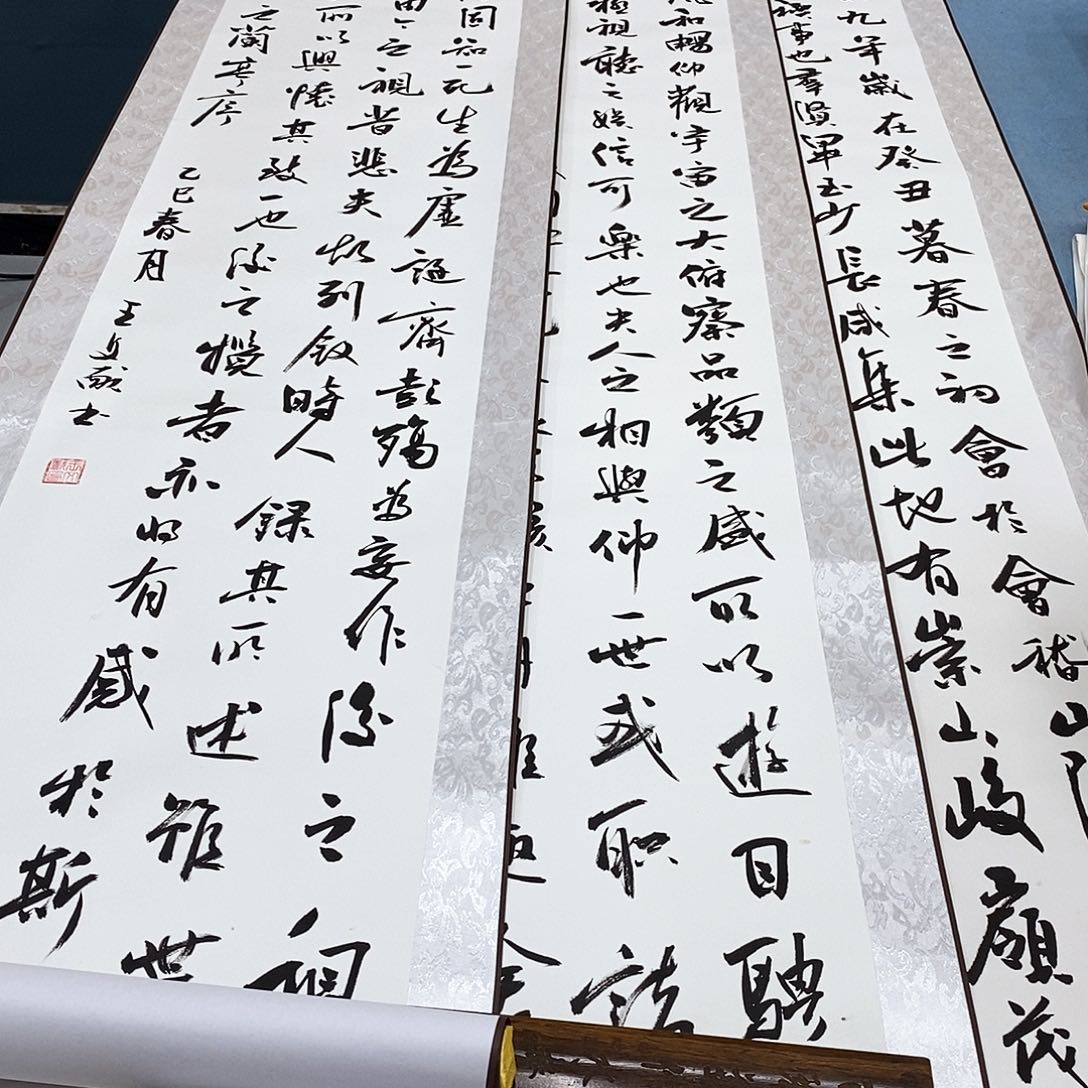 九年歲在癸丑暮春之初會於會稽山
禊事也群賢畢至少長咸集此地有崇山峻嶺茂
和暢仰觀宇宙之大俯察品類之盛所以遊目騁
極視聽之娛信可樂也夫人之相與仰一世或取諸
固知一死生為虛誕齊彭殤為妄作後之視
由今之視昔悲夫故列敘時人錄其所述雖世
所以興懷其致一也後之攬者亦將有感於斯
之蘭亭序 乙巳春月 王文献书